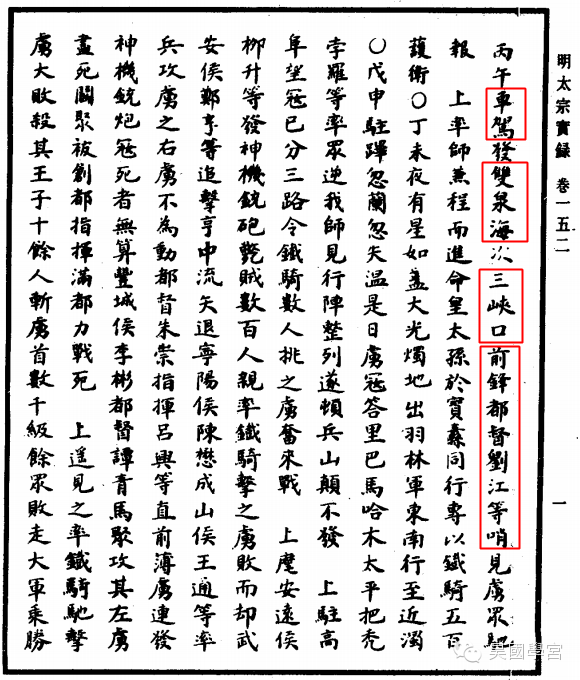 明太宗實錄 卷一五二 一
丙午車駕發雙泉海次三峽口前鋒都督劉江等哨見虜眾
報 上率師兼程而進命皇太孫於寶纛同行專以鐵騎五百
護衛○丁未夜有星如盞大光燭地出羽林軍東南行至近濁
○戊申駐蹕忽蘭忽失溫是日虜寇答里巴馬哈木太平把禿
孛羅等率眾逆我師見行陣整列遂頓兵山顛不發 上駐高
阜望寇已分三路令鐵騎數人挑之虜奮來戰 上麾安遠侯
柳升等發神機銃砲斃賊數百人親率鐵騎擊之虜敗而却武
安侯鄭亨等追擊亨中流矢退寧陽侯陳懋成山侯王通等率
兵攻虜之右虜不為動都督朱崇指揮呂興等直前薄虜連發
神機銃炮寇死者無算豐城侯李彬都督譚青馬聚攻其左虜
盡死鬭聚被創都指揮滿都力戰死 上遥見之率鐵騎馳擊
虜大敗殺其王子十餘人斬虜首數千級餘眾敗走大軍乘勝
美國學宮